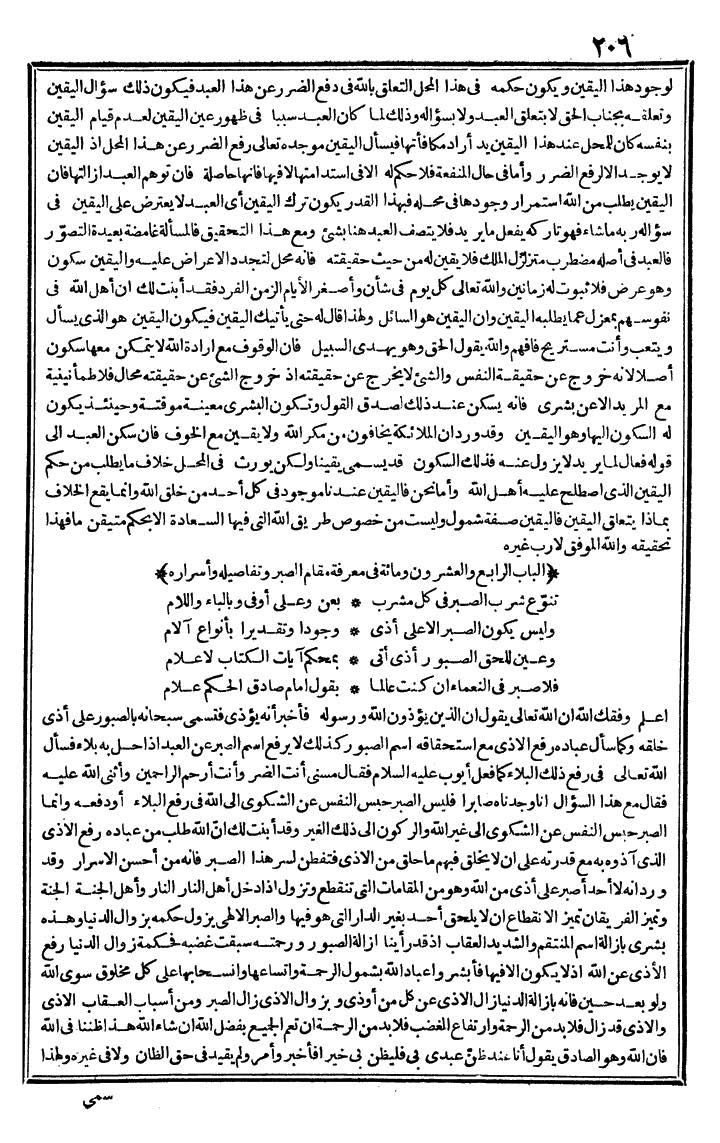 ٢٠٦
لوجود هذا اليقين ويكون حكمه فى هذا المحل التعلق بالله فى دفع الضرر عن هذا العبد فيكون ذلك سؤال اليقين
وتعلقه بجناب الحق لا بتعلق العبد ولا بسؤاله وذلك لما كان العبد سببا فى ظهور عين اليقين لعدم قيام اليقين
بنفسه كان للمحل عند هذا اليقين يد أراد مكافأتها فيسأل اليقين موجده تعالى رفع الضرر عن هذا المحل اذ اليقين
لا يوجد الا لرفع الضرر وأما فى حال المنفعة فلا حكم له الا فى استدامتها لا فيها فانها حاصلة فان توهم العبد ازالتها فان
اليقين يطلب من الله استمرار وجودها فى محله فبهذا القدر يكون ترك اليقين أى العبد لا يعترض على اليقين فى
سؤاله ربه ما شاء فهو تاركه يفعل ما يريد فلا يتصف العبد هنا بشئ ومع هذا التحقيق فالمسألة غامضة بعيدة التصوّر
فالعبد فى أصله مضطرب متزلزل الملك فلا يقين له من حيث حقيقته فانه محل لتجدد الاعراض عليه واليقين سكون
وهو عرض فلا ثبوت له زمانين والله تعالى كل يوم فى شأن وأصغر الأيام الزمن الفرد فقد أبنت لك ان أهل الله فى
نفوسهم بمعزل عما يطلبه اليقين وان اليقين هو السائل ولهذا قال له حتى يأتيك اليقين فيكون اليقين هو الذى يسأل
ويتعب وأنت مستريح فافهم والله يقول الحق وهو يهدى السبيل فان الوقوف مع ارادة الله لا يتمكن معها سكون
أصلا لانه خروج عن حقيقة النفس والشئ لا يخرج عن حقيقته اذ خروج الشئ عن حقيقته محال فلا طمأنينية
مع المريد الا عن بشرى فانه يسكن عند ذلك لصدق القول وتكون البشرى معينة موقتة وحينئذ يكون
له السكون اليها وهو اليقين وقد ورد ان الملائكة يخافون من مكر الله ولا يقين مع الخوف فان سكن العبد الى
قوله فعال لما يريد لا يزول عنه فذلك السكون قد يسمى يقينا ولكن يورث فى المحل خلاف ما يطلب من حكم
اليقين الذى اصطلح عليه أهل الله وأما نحن فاليقين عندنا موجود فى كل أحد من خلق الله وانما يقع الخلاف
بماذا يتعلق اليقين فاليقين صفة شمول وليست من خصوص طريق الله التى فيها السعادة الا بحكم متيقن ما فهذا
تحقيقه والله الموفق لا رب غيره
﴿الباب الرابع والعشرون ومائة فى معرفة مقام الصبر وتفاصيله وأسراره﴾
تنوّع شرب الصبر فى كل مشرب * بعن وعلى أو فى وبالباء واللام
وليس يكون الصبر الا على أذى * وجودا وتقديرا بأنواع آلام
وعين للحق الصبور أذى أتى * بمحكم آيات الكتاب لاعلام
فلا صبر فى النعماء ان كنت عالما * بقول امام صادق الحكم علام
اعلم وفقك الله ان الله تعالى يقول ان الذين يؤذون الله ورسوله فأخبر أنه يؤذى فتسمى سبحانه بالصبور على أذى
خلقه وكما سأل عباده رفع الاذى مع استحقاقه اسم الصبور كذلك لا يرفع اسم الصبر عن العبد اذا حل به بلاء فسأل
الله تعالى فى رفع ذلك البلاء كما فعل أيوب عليه السلام فقال مسنى أنت الضر وأنت أرحم الراحمين وأثنى الله عليه
فقال مع هذا السؤال انا وجدناه صابرا فليس الصبر حبس النفس عن الشكوى الى الله فى رفع البلاء أو دفعه وانما
الصبر حبس النفس عن الشكوى الى غير الله والركون الى ذلك الغير وقد أبنت لك انّ الله طلب من عباده رفع الاذى
الذى آذوه به مع قدرته على ان لا يخلق فيهم ما خلق من الاذى فتفطن لسر هذا الصبر فانه من أحسن الاسرار وقد
ورد انه لا أحد أصبر على أذى من الله وهو من المقامات التى تنقطع وتزول اذا دخل أهل النار النار وأهل الجنة الجنة
وتميز الفريقان تميز الانقطاع ان لا يلحق أحد بغير الدار التى هو فيها والصبر الالهى يزول حكمه بزوال الدنيا وهذه
بشرى بازالة اسم المنتقم والشديد العقاب اذ قد رأينا ازالة الصبور ورحمته سبقت غضبه فحكمة زوال الدنيا رفع
الأذى عن الله اذ لا يكون الا فيها فأبشروا عباد الله بشمول الرحمة واتساعها وانسحابها على كل مخلوق سوى الله
ولو بعد حين فانه بازالة الدنيا زال الاذى عن كل من أوذى وبزوال الاذى زال الصبر ومن أسباب العقاب الاذى
والاذى قد زال فلا بد من الرحمة وارتفاع الغضب فلا بد من الرحمة ان تعم الجميع بفضل الله ان شاء الله هذا ظننا فى الله
فان الله وهو الصادق يقول أنا عند ظنّ عبدى بى فليظن بى خيرا فأخبر وأمر ولم يقيد فى حق الظان ولا فى غيره ولهذا
سمى